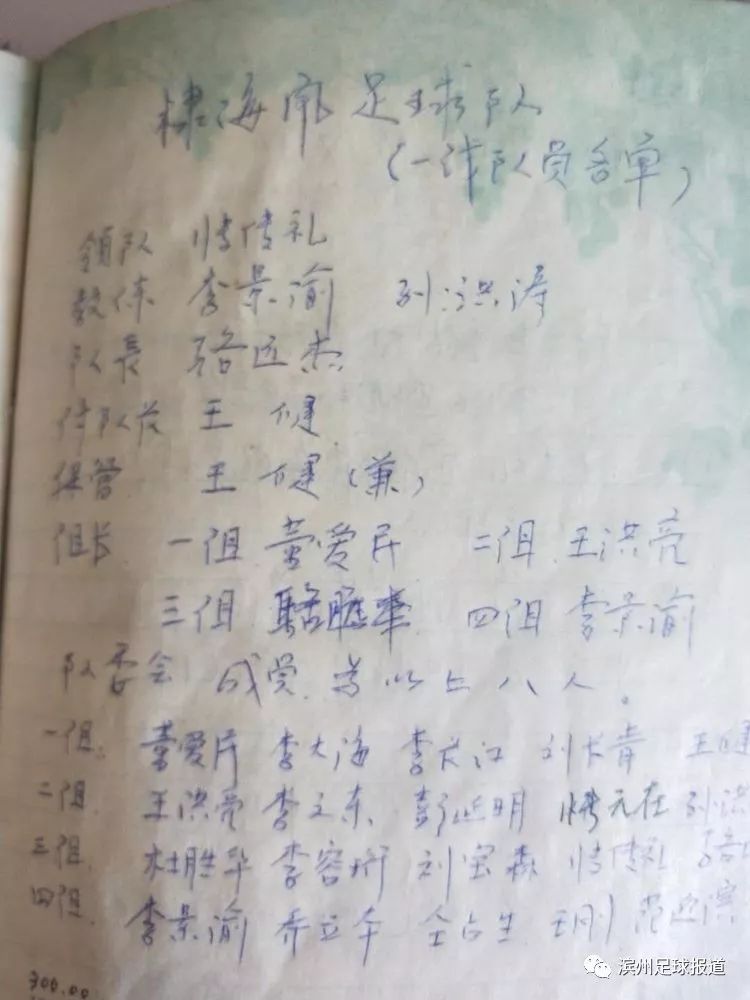 棣海风足球队
(一线队员名单)
領队 傅传礼
教练 李景渝 孙洪涛
队長 骆远杰
付队长 王健
保管 王健(兼)
组长 一组 董爱民 二组 王洪亮
三组 四组 李景渝
队委会 成员 为以上八人。
一组 董爱民 李大海 李长江 刘长青 王健
二组 王洪亮 李文东 彭延明 傅元在 孙洪
三组 杜胜华 李容珩 刘宝森 傅传礼 骆
四组 李景渝 乔立本 仝占生 王刚
300.00
滨州足球报道